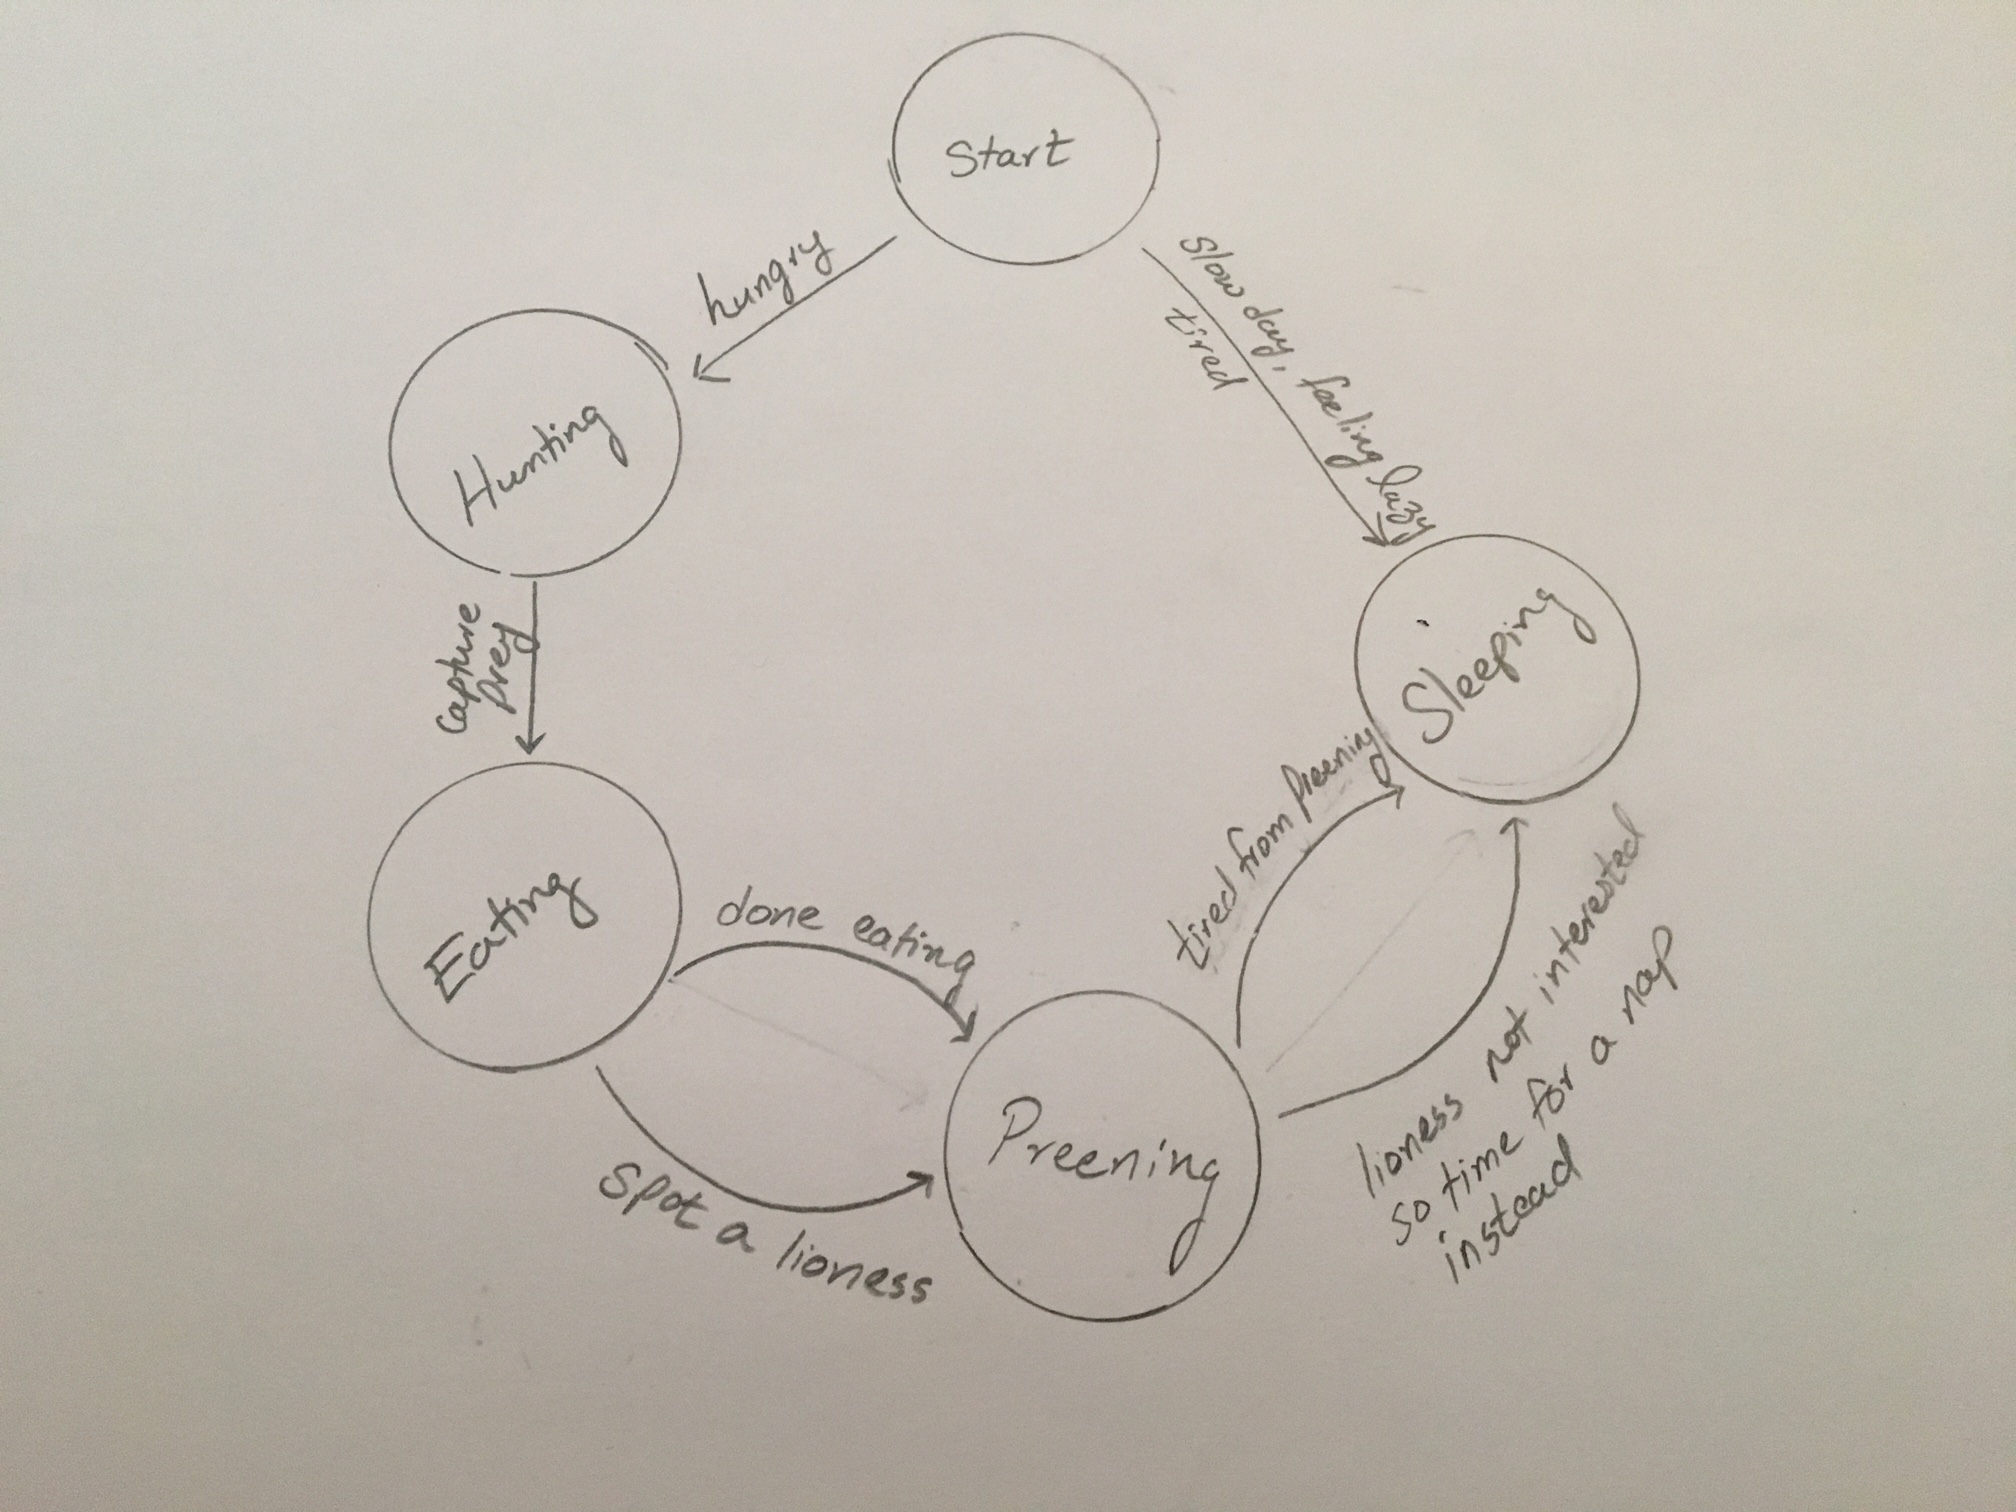 Start
hungry
Slow day, feeling lazy
tired
Hunting
Capture
Prey
Sleeping
Eating
done eating
tired from Preening
Spot a lioness
Preening
lioness not interested
so time for a nap
instead